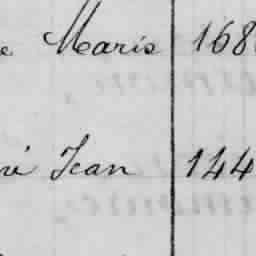 e Maris 168
ré Jean 144